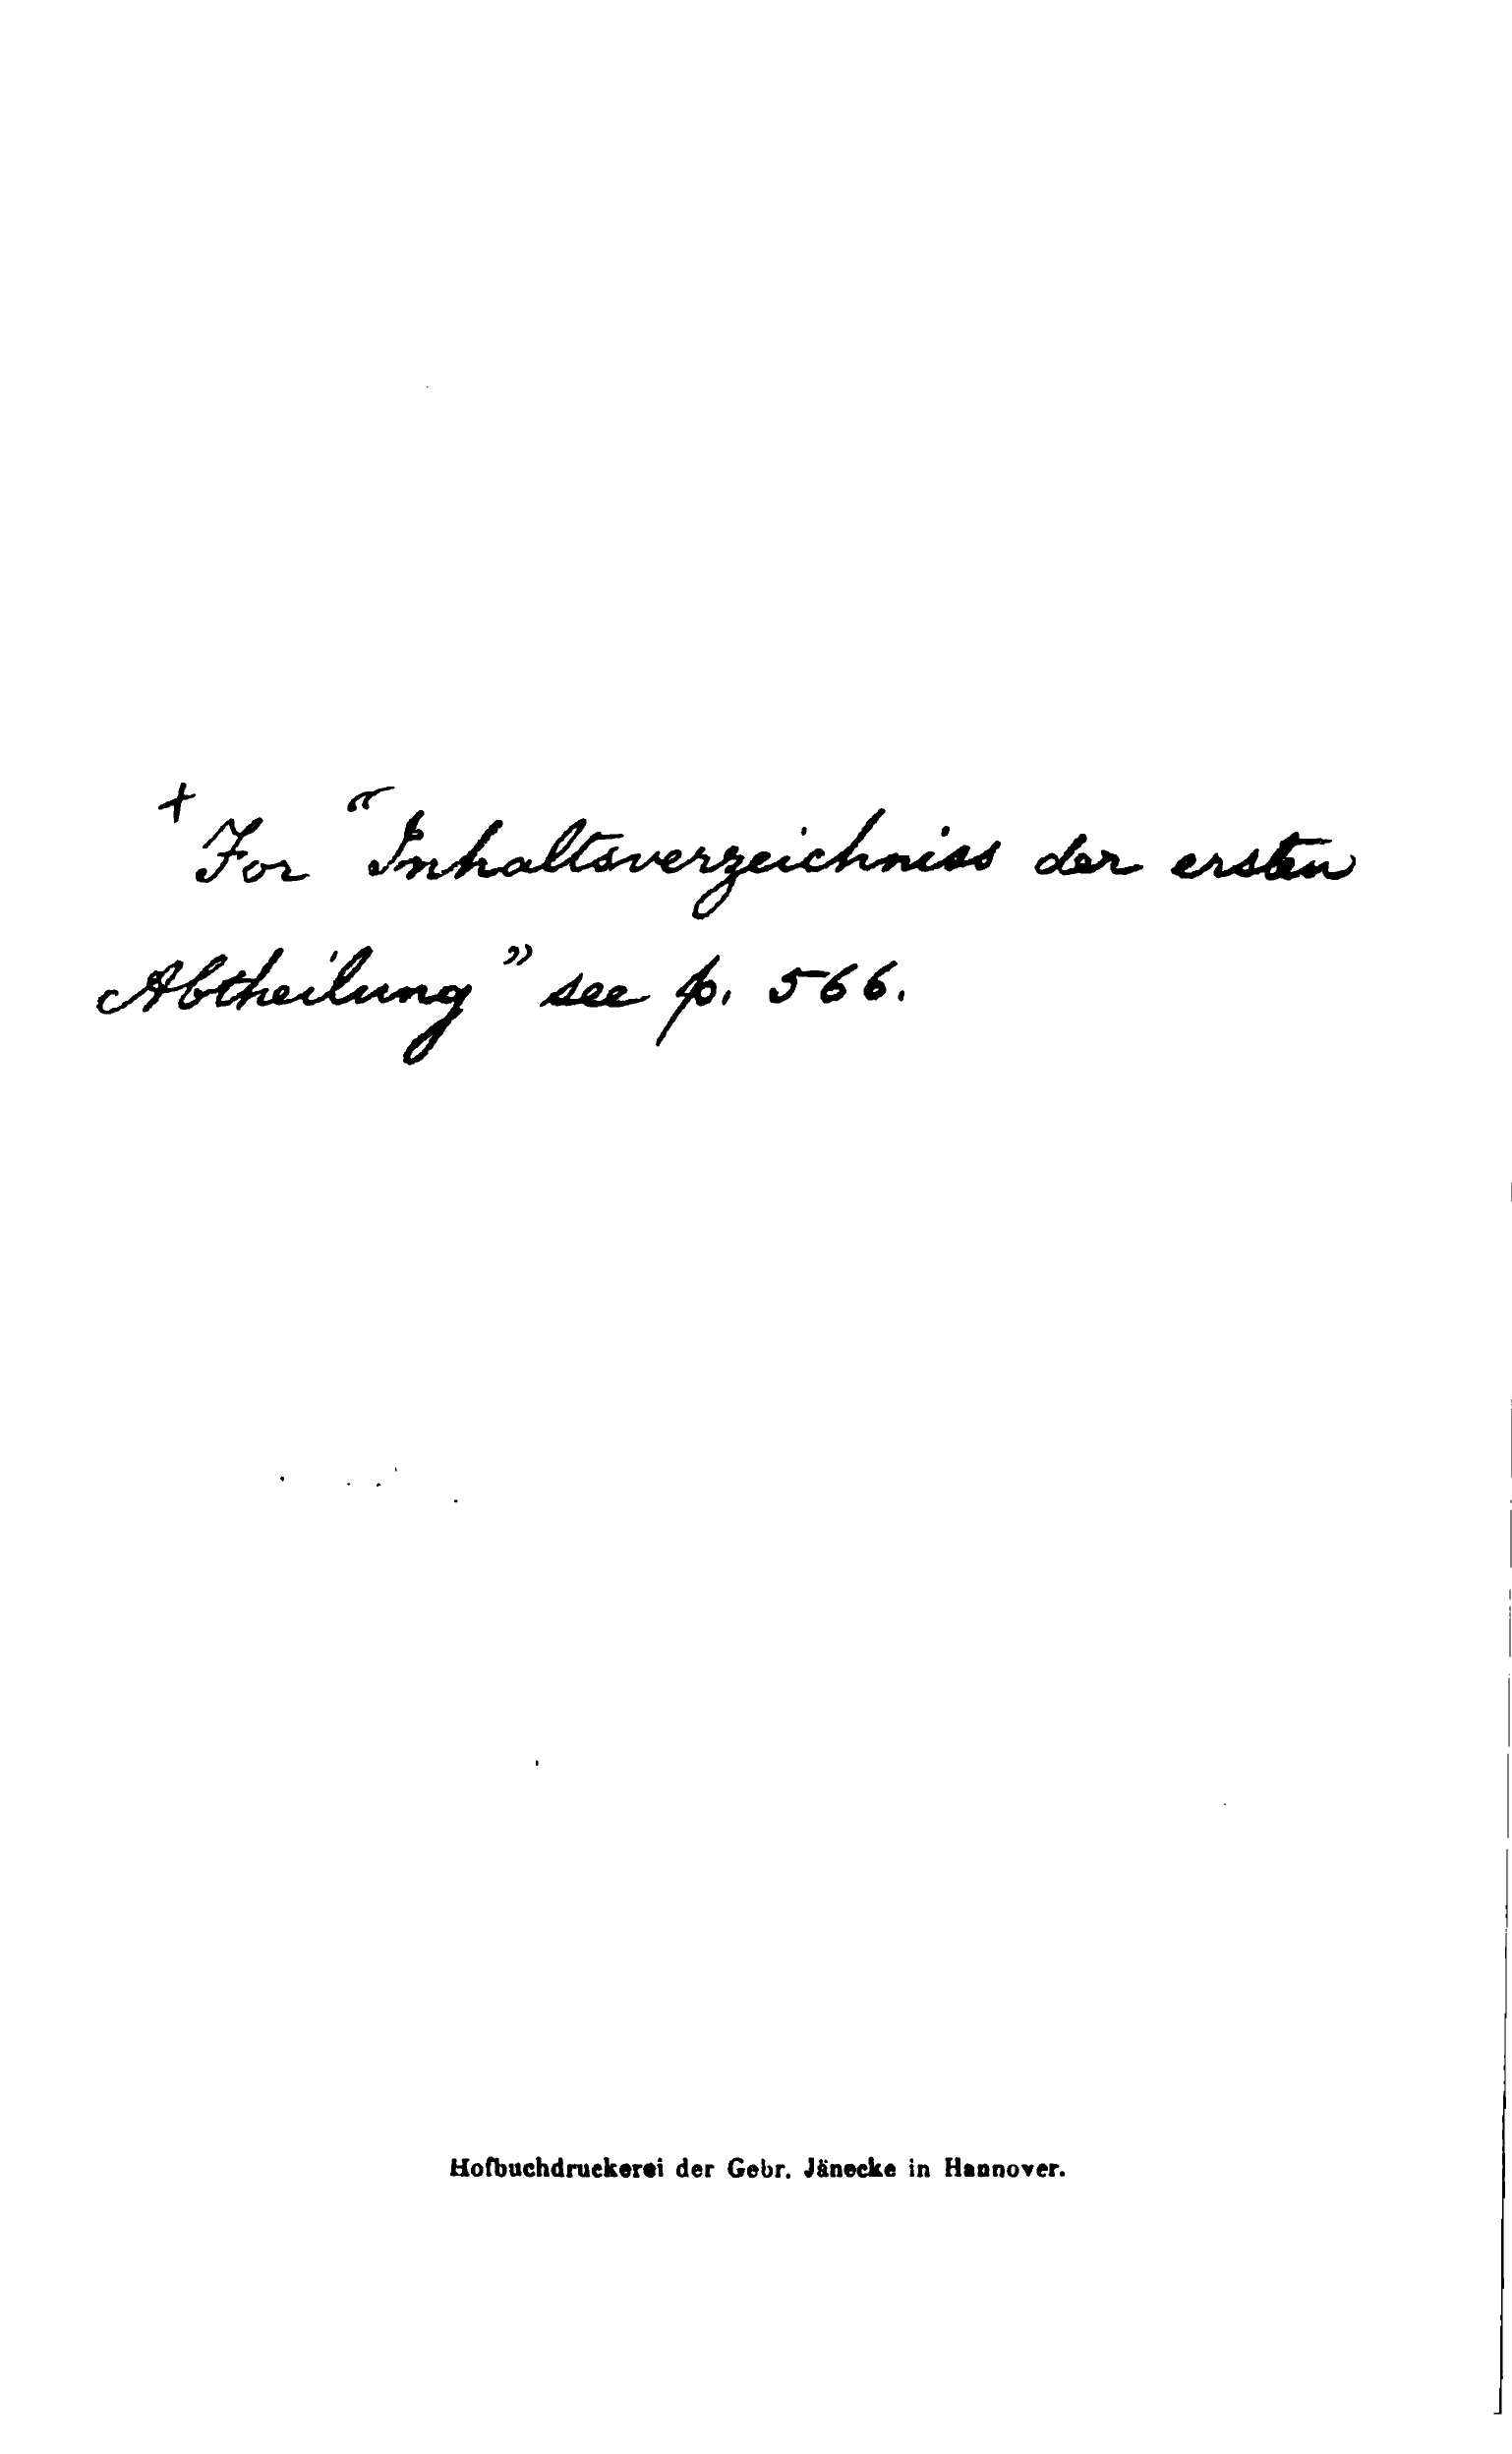 + For “Inhaltsverzeichniss der ersten
Abtheilung” see p. 566.
Hofbuchdruckerei der Gebr. Jänecke in Hannover.